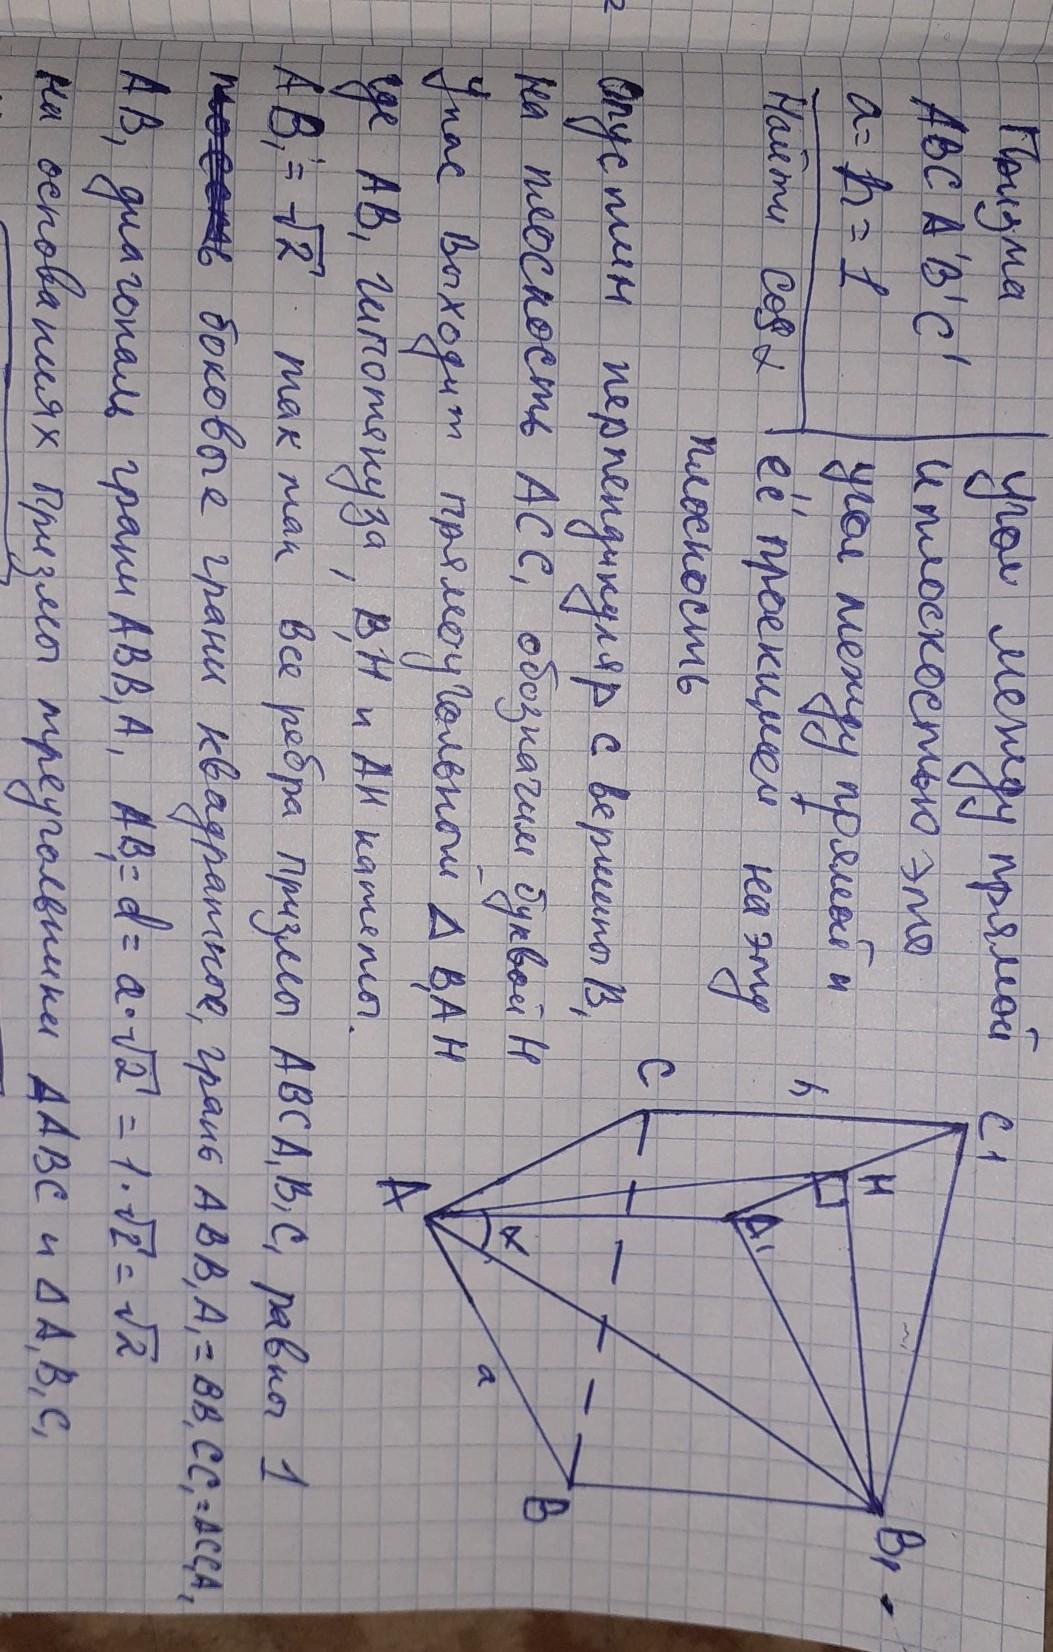 Призма
ABCA'B'C'
a=h=1
Найти cosα
Угол между прямой
и плоскостью это
угол между прямой и
её проекцией на эту
плоскость
C1
H
A1
B1
h
C
A
α
a
B
Опустим перпендикуляр с вершины B1
на плоскость ACC1 обозначим буквой H
У нас выходит прямоугольный Δ B1AH
где AB1 гипотенуза, B1H и AH катеты.
AB1=√2 так как все ребра призмы ABCA1B1C1 равны 1
боковые грани квадратное, грань ABB1A1=BB1CC1=ACC1A1
AB1 диагональ грани ABB1A1 AB1=d=a·√2=1·√2=√2
на основаниях призмы треугольники ΔABC и ΔA1B1C1